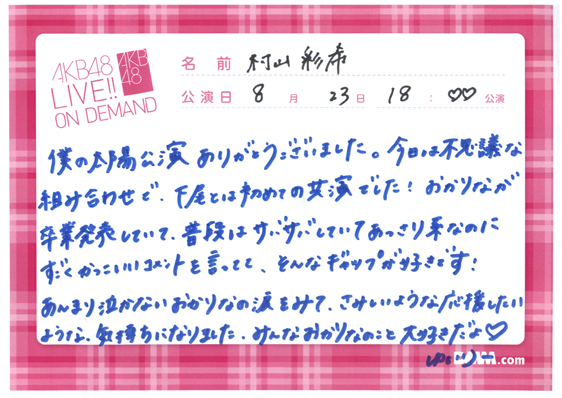 AKB48
LIVE!!
ON DEMAND
AKB
48
名前 村山彩希
公演日 8月23日 18:♡♡公演
僕の太陽公演ありがとうございました。今日は不思議な
組み合わせで、下尾とは初めての共演でした!おかりなが
卒業発表していて、普段はサバサバしていてあっさり系なのに
すごくかっこいいコメントを言ってて、そんなギャップが好きです!
あんまり泣かないおかりなの涙をみて、さみしいような応援したい
ような、気持ちになりました。みんなおかりなのこと大好きだよ♡
.com